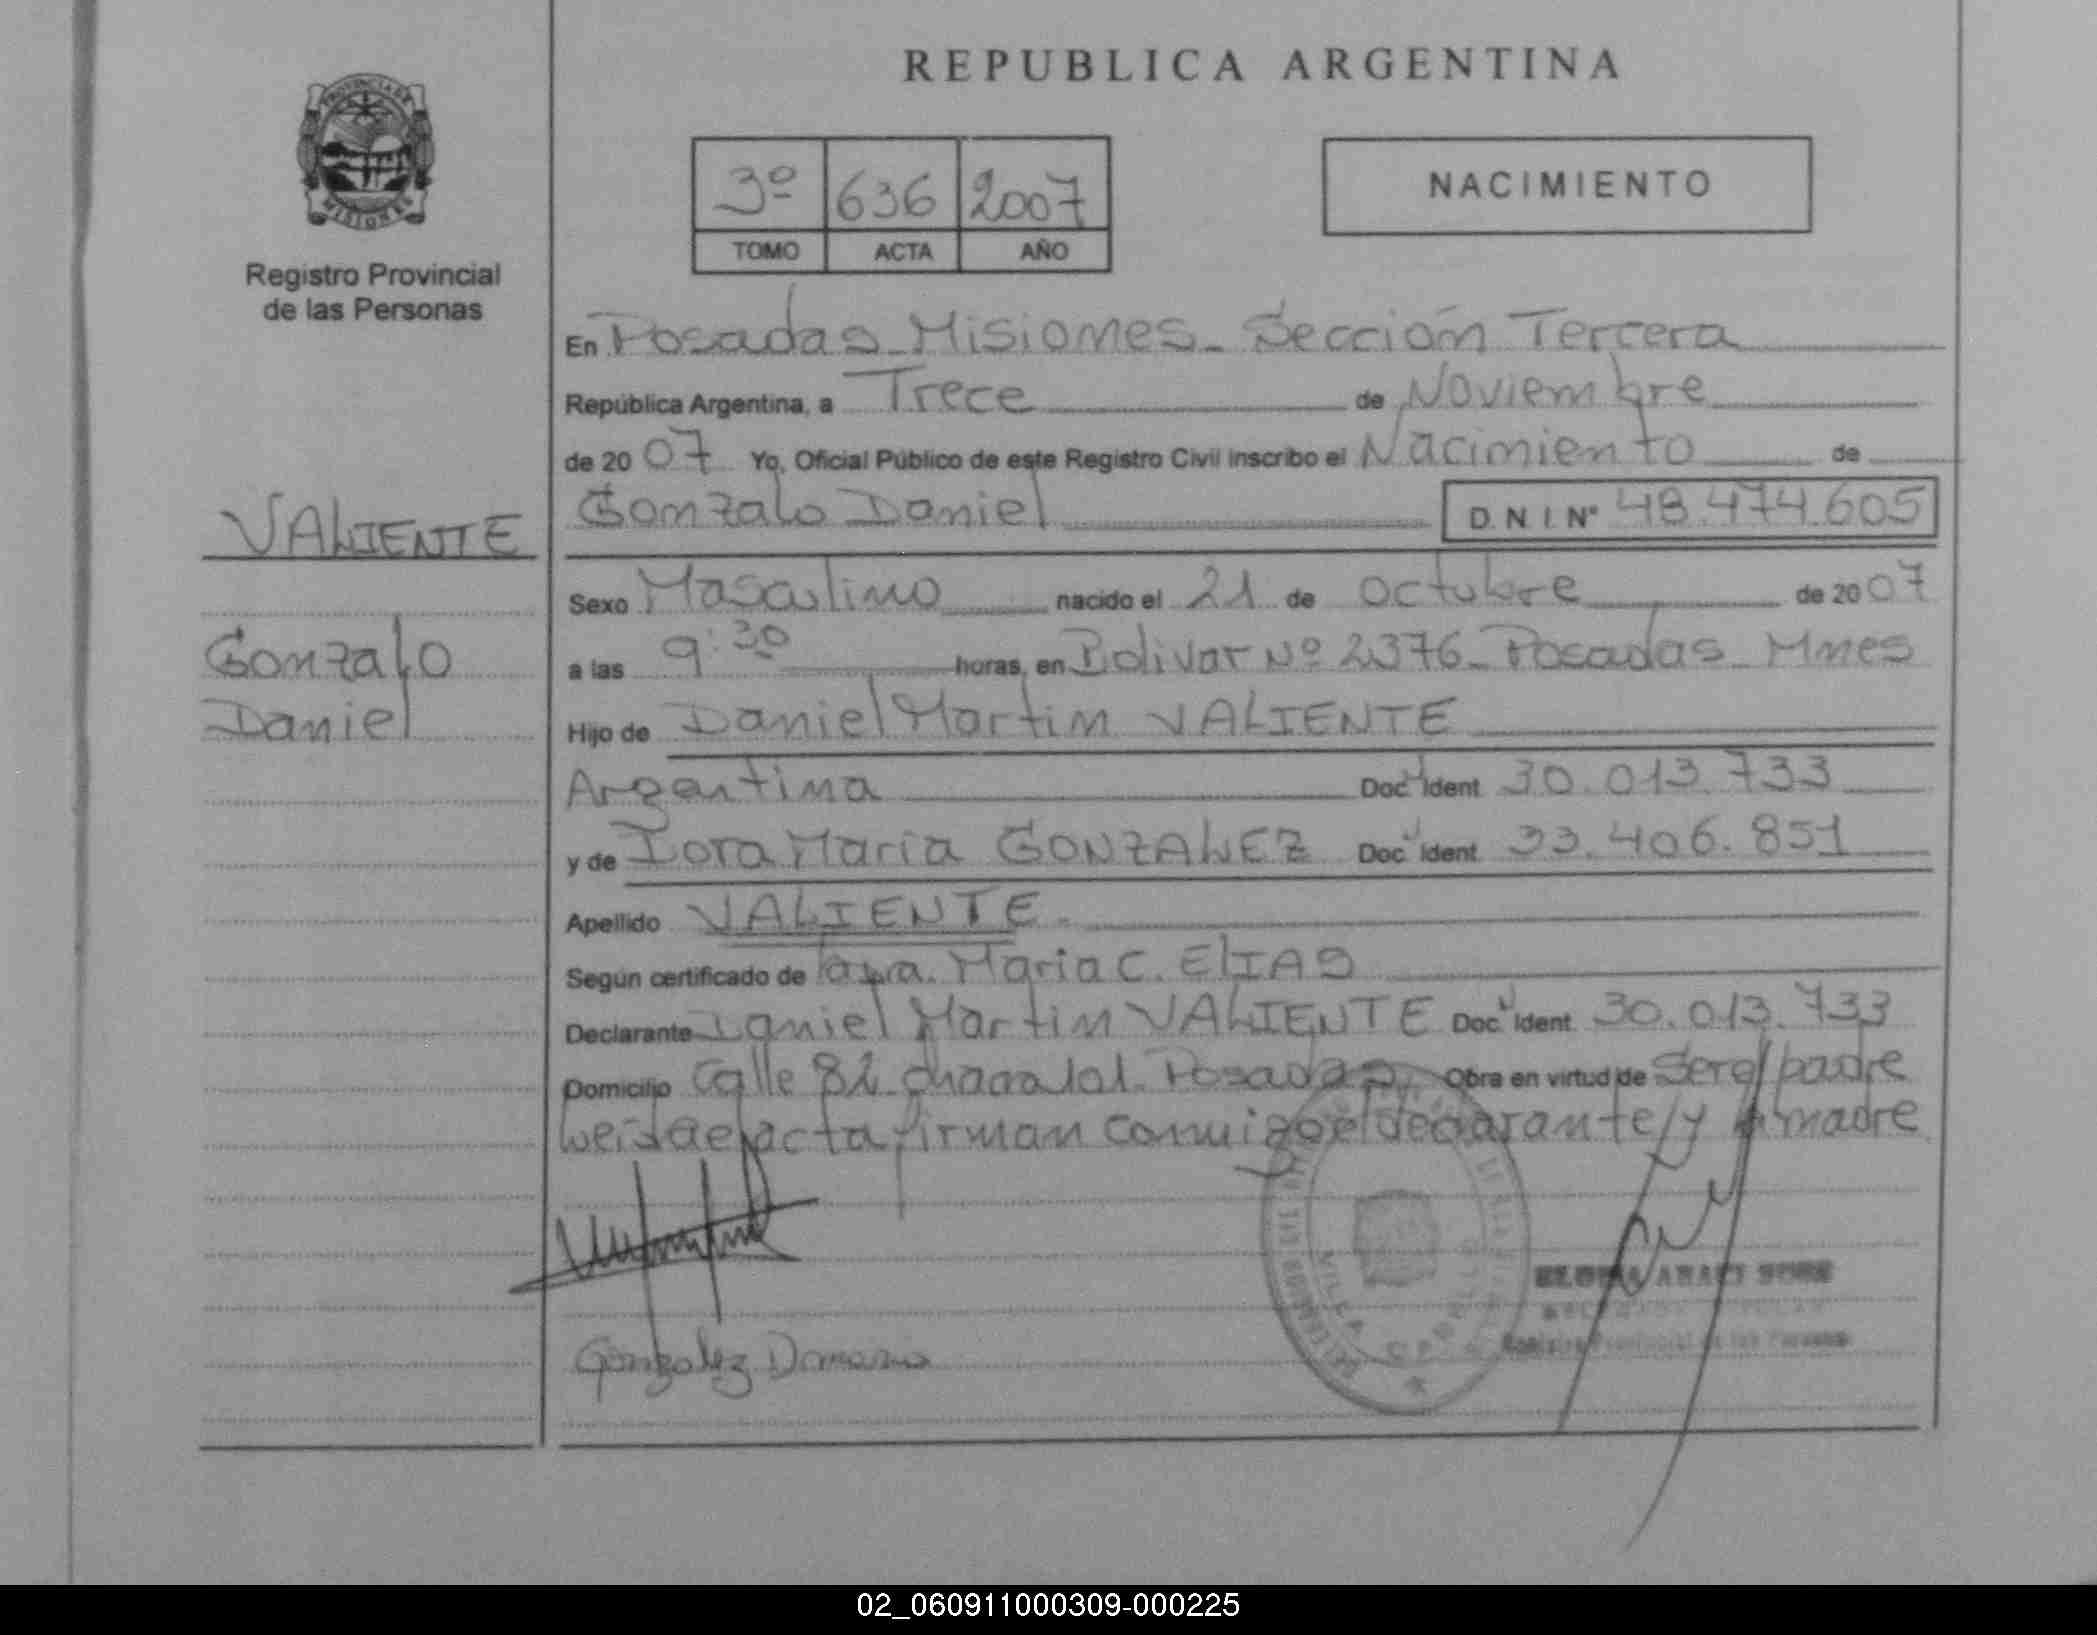 REPUBLICA ARGENTINA
PROVINCIA DE
MISIONES
Registro Provincial
de las Personas
3º 636 2007
TOMO ACTA AÑO
NACIMIENTO
En Posadas Misiones - Sección Tercera
República Argentina, a Trece de Noviembre
de 2007 Yo, Oficial Público de este Registro Civil inscribo el Nacimiento de
Gonzalo Daniel D.N.I.Nº 48.474.605
VALIENTE
Gonzalo
Daniel
Sexo Masculino nacido el 21 de octubre de 2007
a las 9:30 horas, en Bolivar Nº 2376 - Posadas - Mnes
Hijo de Daniel Martin VALIENTE
Argentina Doc Ident. 30.013.733
y de Maria GONZALEZ Doc Ident. 33.406.851
Apellido VALIENTE.
Según certificado de Maria C. ELIAS
Declarante Daniel Martin VALIENTE Doc Ident. 30.013.733
Domicilio Calle 82 Posadas, Obra en virtud de Ser el padre
acta firman conmigo el declarante y la madre
Gonzalez
Registro Provincial de las Personas
02_060911000309-000225